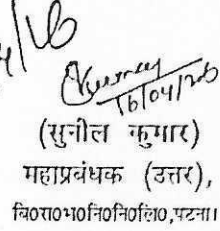 16/04/26
(सुनील कुमार)
महाप्रबंधक (उत्तर),
बि०रा०भ०नि०नि०लि०,पटना।